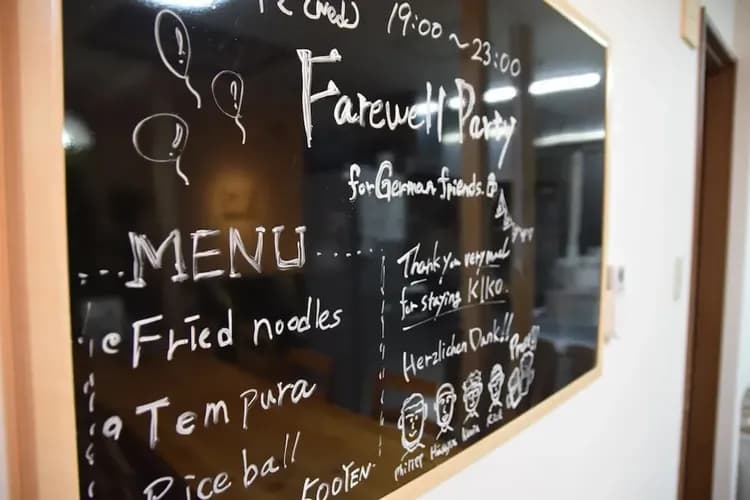 (Wed) 19:00~23:00
Farewell Party
for German friends.
MENU
Fried noodles
Tempura
Rice ball
Thank you very much
for staying KIKO.
Herzlichen Dank!!
Philipp